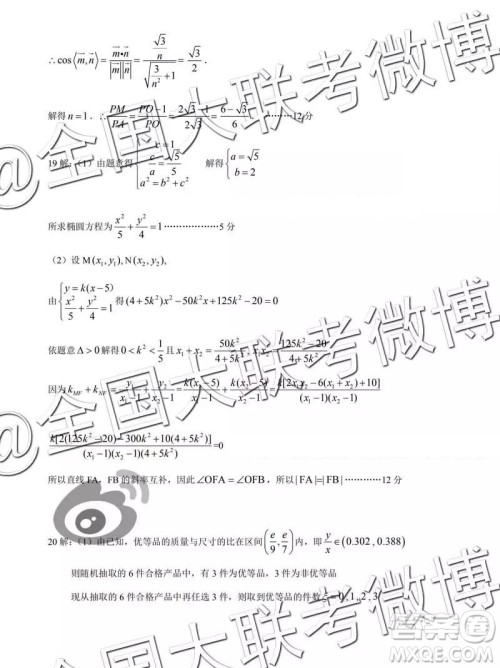 ∴cos⟨m,n⟩ = (m•n)/(|m||n|) = (√3/n)/√(3/n²+1) = √3/2 .
解得 n=1 . ∴PM/PA = (PO−1)/PO = (2√3−1)/(2√3) = (6−√3)/6 ………12分
19解:(1)由题意得 { c=1 c/a=√5/5 a²=b²+c² 解得 { a=√5 b=2
所求椭圆方程为 x²/5 + y²/4 = 1 ………………5分
(2)设 M(x₁,y₁), N(x₂,y₂),
由 { y=k(x−5) x²/5+y²/4=1 得 (4+5k²)x²−50k²x+125k²−20=0
依题意 Δ>0 解得 0<k²<1/5 且 x₁+x₂ = 50k²/(4+5k²), x₁x₂ = (125k²−20)/(4+5k²)
因为 k_MF + k_NF = y₁/(x₁−1) + y₂/(x₂−1) = k(x₁−5)/(x₁−1) + k(x₂−5)/(x₂−1) = k[2x₁x₂−6(x₁+x₂)+10]/((x₁−1)(x₂−1))
k[2(125k²−20)−300k²+10(4+5k²)]/((x₁−1)(x₂−1)(4+5k²)) =0
所以直线 FA、FB 的斜率互补,因此∠OFA=∠OFB,所以|FA|=|FB| …………12分
20解:(1)由已知,优等品的质量与尺寸的比在区间 (e/9, e/7) 内,即 y/x ∈(0.302, 0.388)
则随机抽取的6件合格产品中,有3件为优等品,3件为非优等品
现从抽取的6件合格产品中再任选3件,则取到优等品的件数ξ=0,1,2,3
@全国大联考微博
@全国大联考微博
@全国大联考微博
答案圈
MXQE.COM